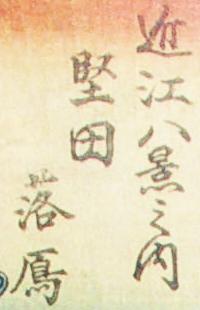 近江八景之内
堅田
落雁